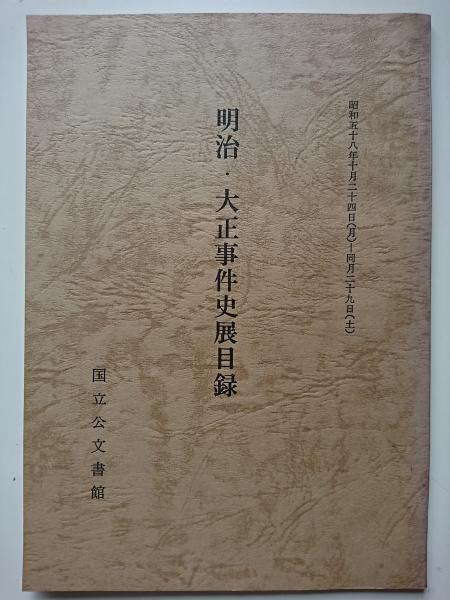 昭和五十八年十月二十四日(月)―同月二十九日(土)
明治・大正事件史展目録
国立公文書館